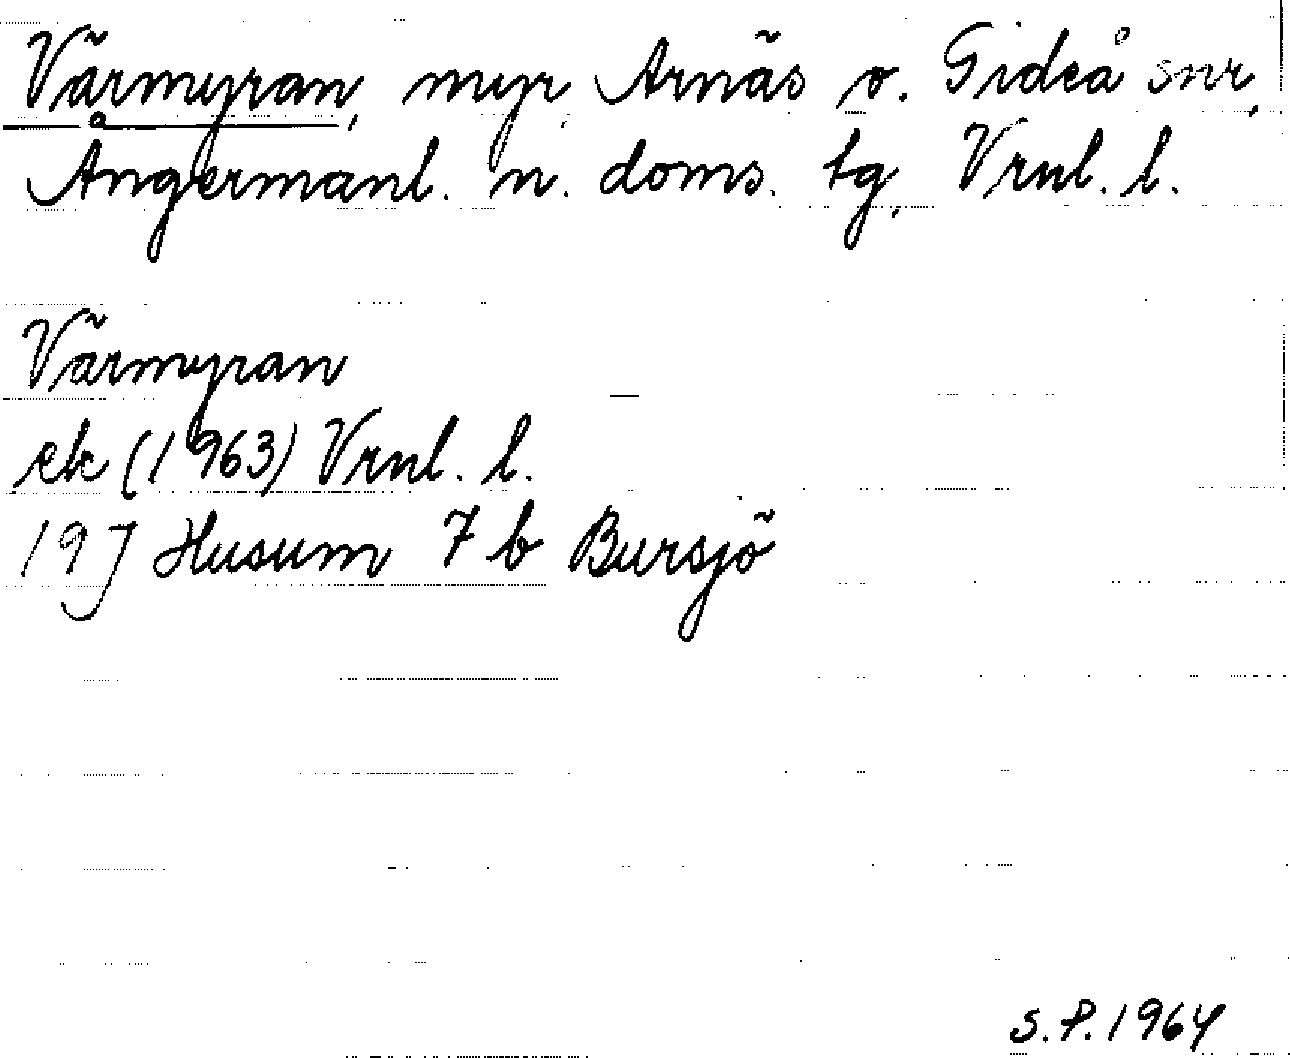 Värmyran, myr, Arnäs o. Gideå snr,
Ångermanl. n. doms. tg, Vrnl. l.
Värmyran
ek (1963) Vrnl. l.
19J Husum 7 b Bursjö
S.P. 1964